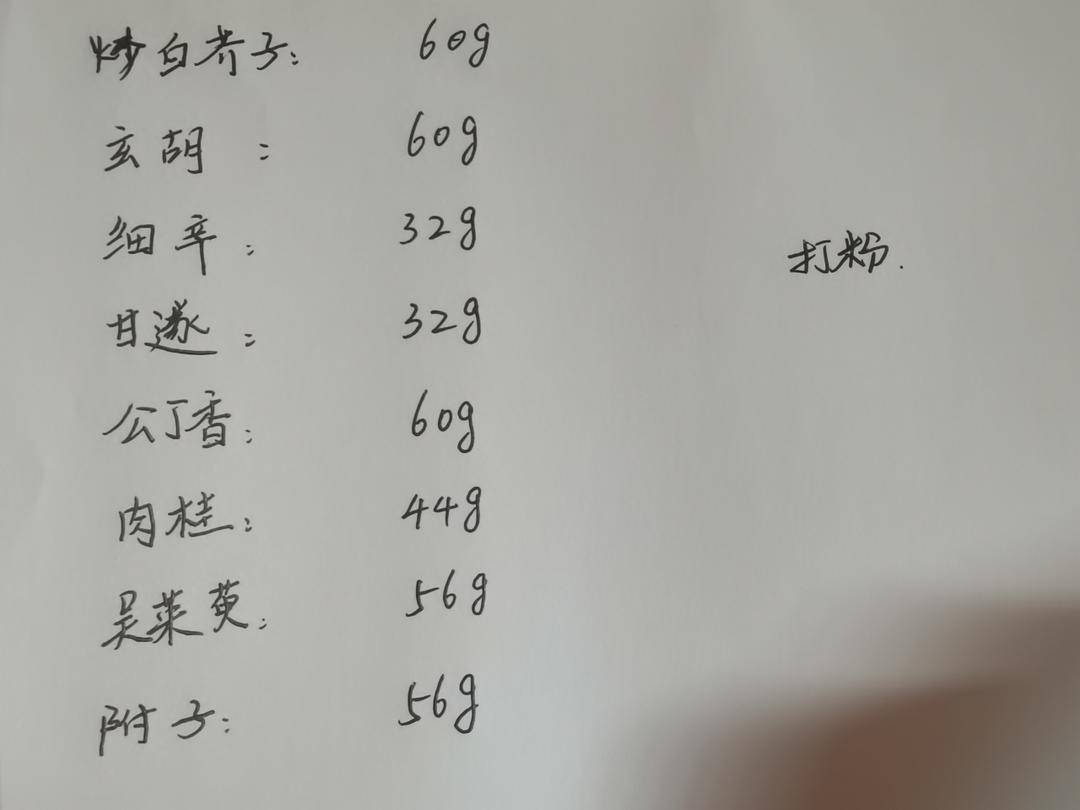 炒白芥子: 60g
玄胡: 60g
细辛: 32g
打粉.
甘遂: 32g
公丁香: 60g
肉桂: 44g
吴茱萸: 56g
附子: 56g